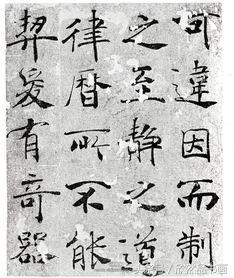 可違因而制
之至靜之道
律曆所不能
契爰有奇器